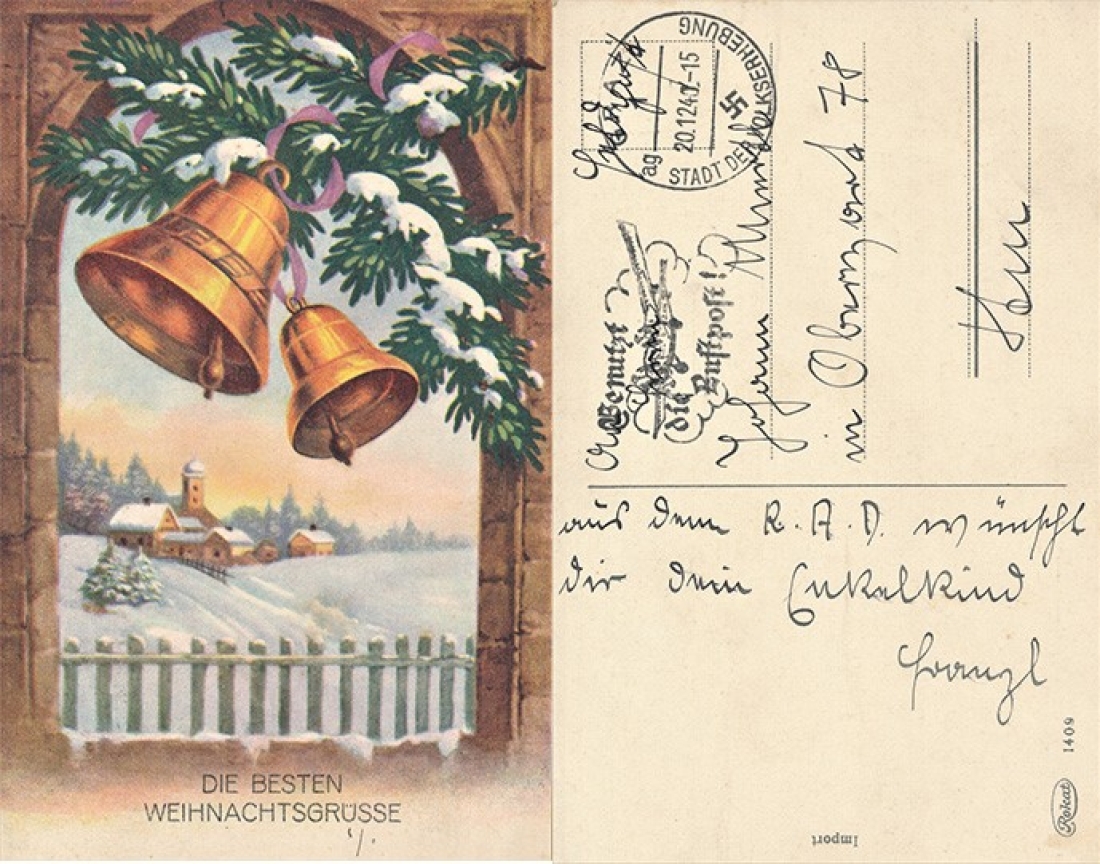 DIE BESTEN
WEIHNACHTSGRÜSSE
STADT DER VOLKSERHEBUNG
20.12.40.-15
Benutzt
die Luftpost!
Herrn
Johann
in Oberzart 78
aus dem R. A. D. wünscht
dir dein Enkelkind
Franzl
1409
Rokat
Import